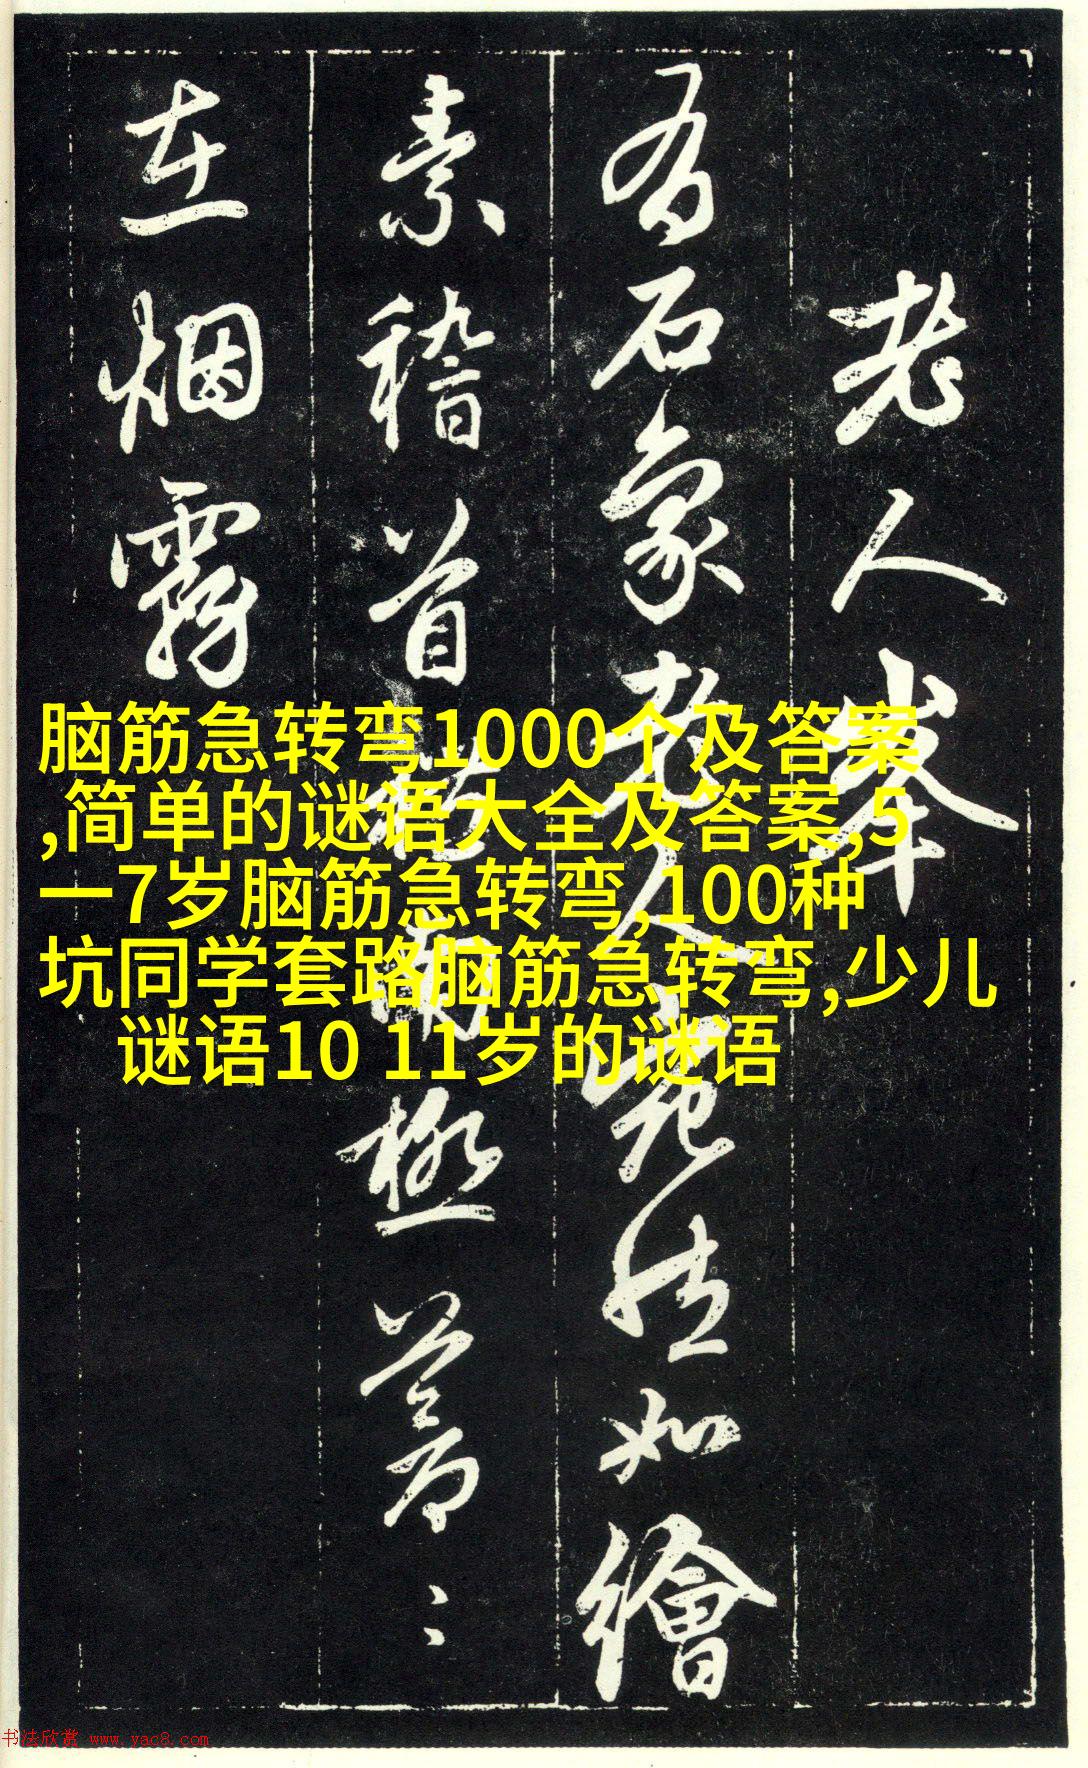 老人峯
有石象老人宛然如繪
素稽首南極蒼〻
在烟霧
脑筋急转弯1000个及答案
,简单的谜语大全及答案,5
一7岁脑筋急转弯,100种
坑同学套路脑筋急转弯,少儿
谜语10 11岁的谜语
书法欣赏 www.yac8.com